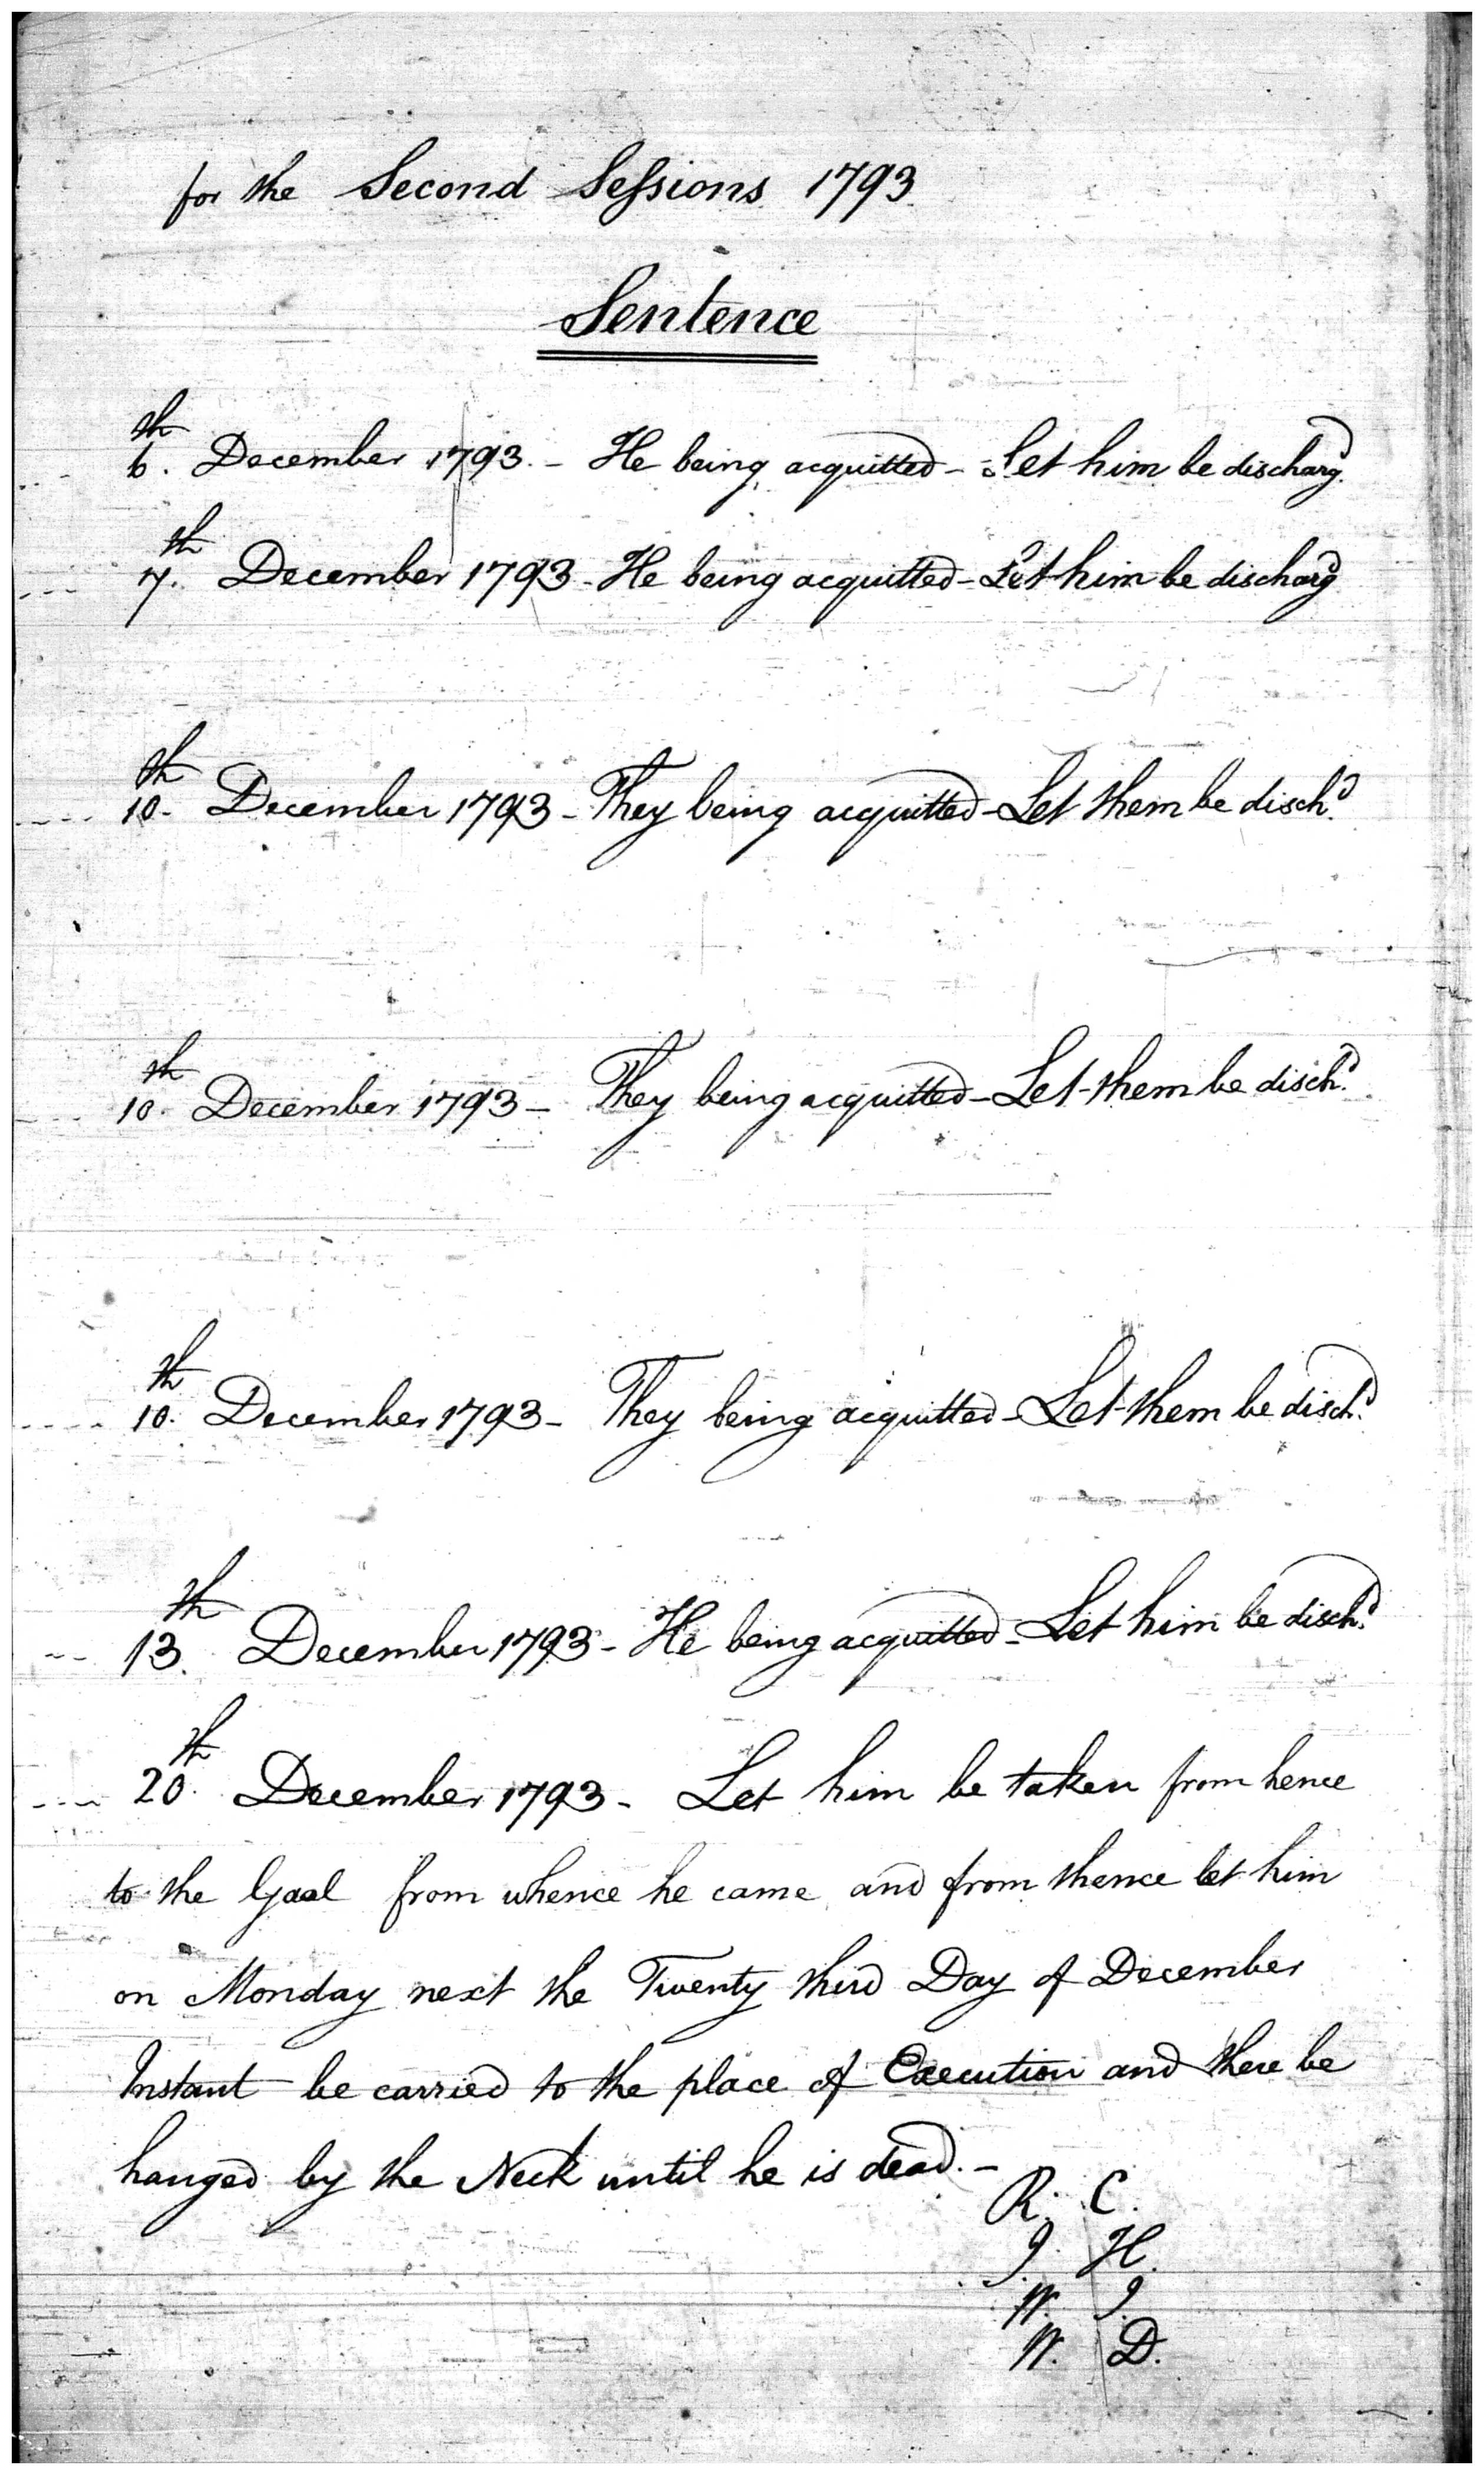 for the Second Sessions 1793
Sentence
6th. December 1793. - He being acquitted - Let him be discharg'd.
7th. December 1793 - He being acquitted - Let him be discharg'd
10th. December 1793 - They being acquitted - Let them be disch'd.
10th. December 1793 - They being acquitted - Let them be disch'd.
10th. December 1793 - They being acquitted - Let them be disch'd.
13th. December 1793 - He being acquitted - Let him be disch'd.
20th. December 1793 - Let him be taken from hence
to the Goal from whence he came and from thence let him
on Monday next the Twenty third Day of December
Instant be carried to the place of Execution and there be
hanged by the Neck until he is dead. -
R. C.
J. H.
W. J.
W. D.